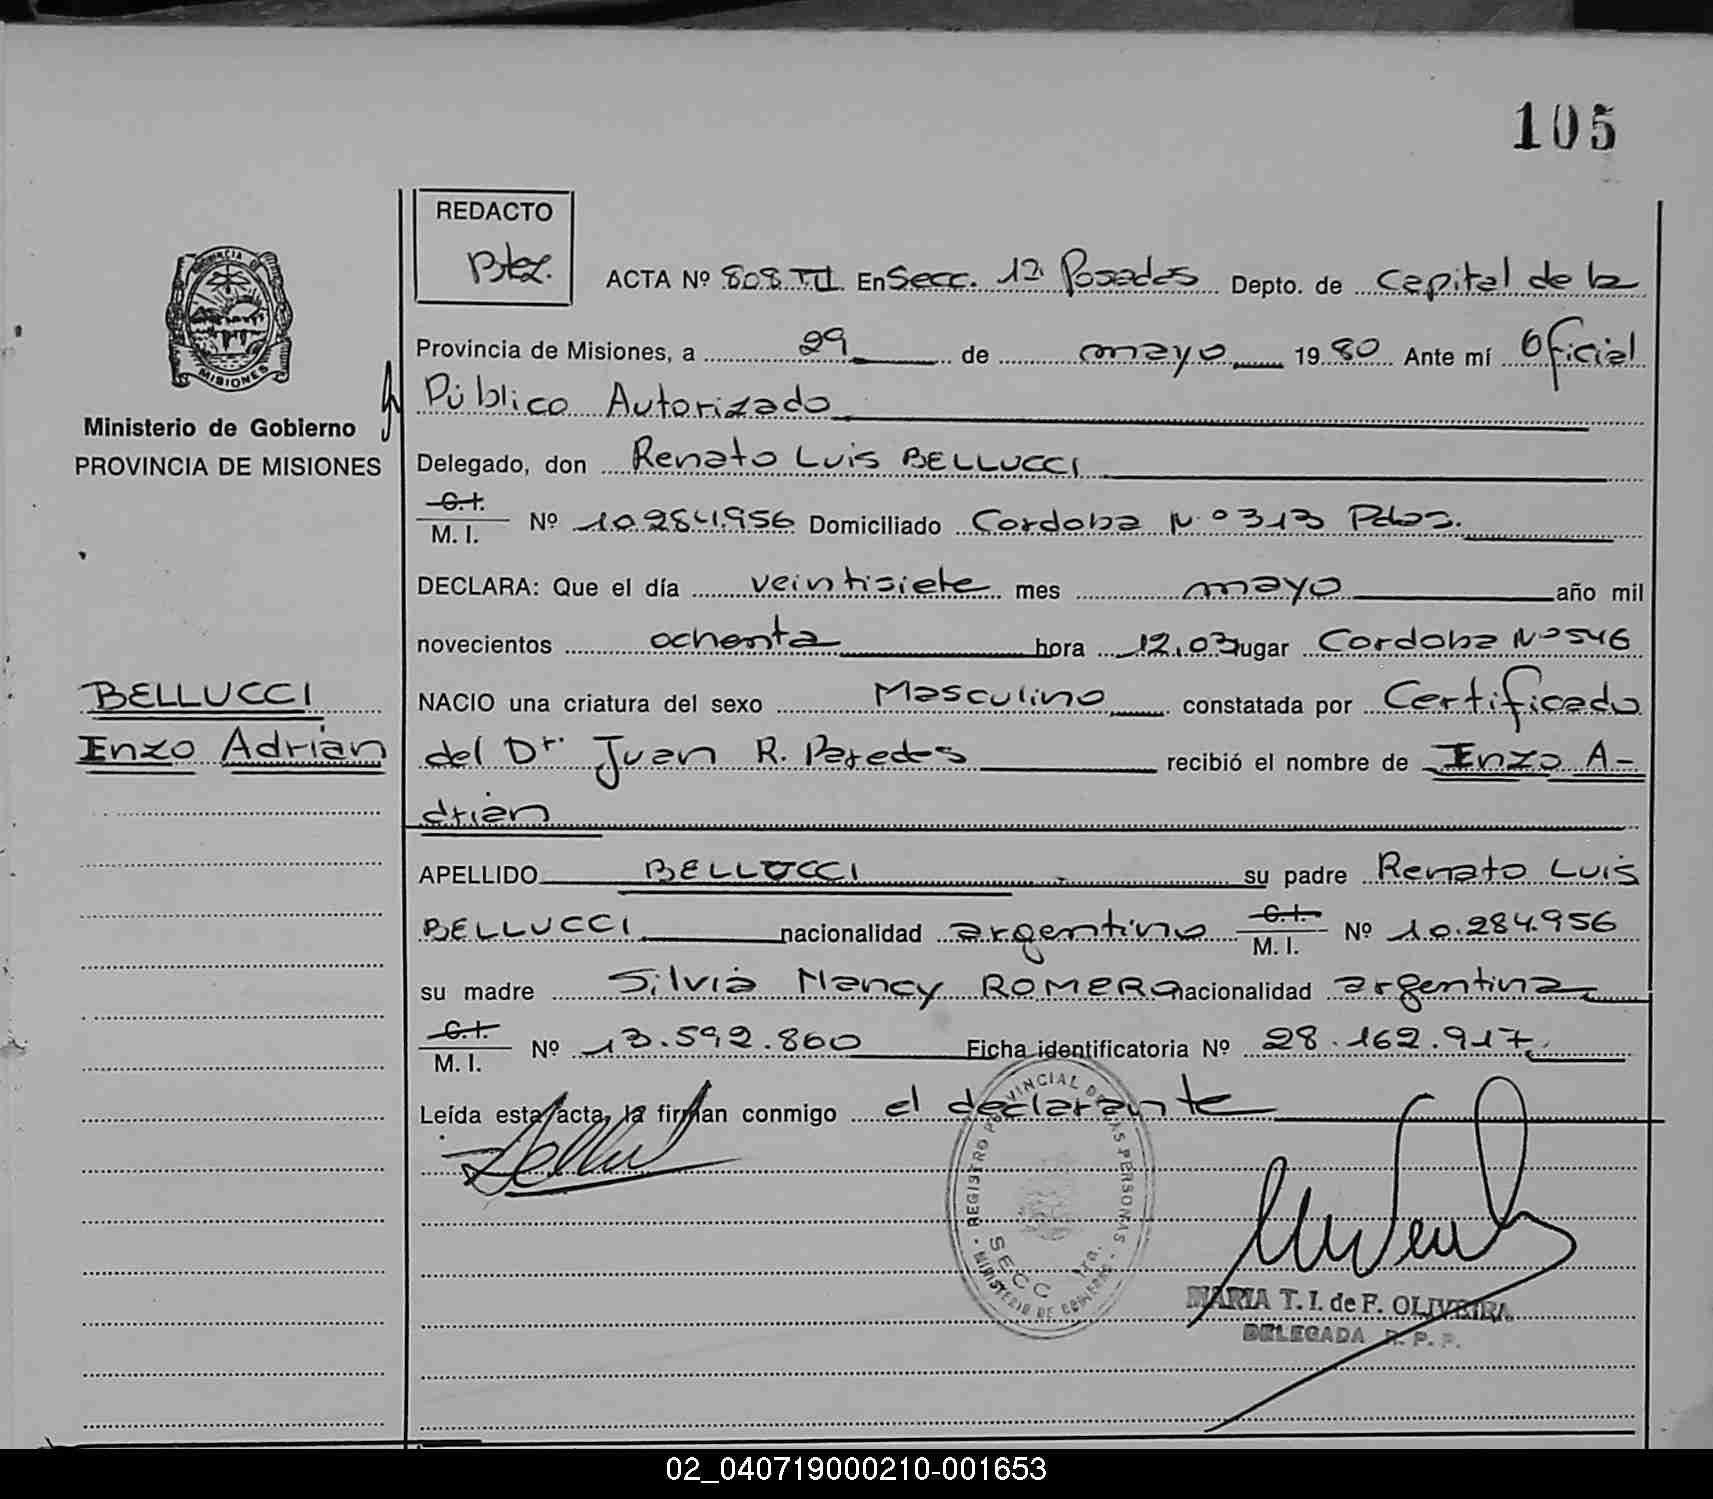 105
REDACTO
Btez.
ACTA Nº 808 TII En Secc. 1ª Posadas Depto. de Capital de la
Provincia de Misiones, a 29 de mayo 19 80 Ante mí Oficial
Público Autorizado
Ministerio de Gobierno
PROVINCIA DE MISIONES
Delegado, don Renato Luis BELLUCCI
C.I.
M. I. Nº 10.284.956 Domiciliado Cordoba N.º 313 Pdas.
DECLARA: Que el día veintisiete mes mayo año mil
novecientos ochenta hora 12,03 lugar Cordoba Nº 546
BELLUCCI
Enzo Adrián
NACIO una criatura del sexo Masculino constatada por Certificado
del Dr. Juan R. Paredes recibió el nombre de Enzo A-
drián
APELLIDO BELLUCCI su padre Renato Luis
BELLUCCI nacionalidad argentino C.I. M. I. Nº 10.284.956
su madre Silvia Nancy ROMERO nacionalidad argentina
C.I.
M. I. Nº 13.592.860 Ficha identificatoria Nº 28.162.917
Leída esta acta, la firman conmigo el declarante
REGISTRO PROVINCIAL DE LAS PERSONAS
SECC 1ra.
MINISTERIO DE GOBIERNO
MARIA T. I. de F. OLIVEIRA
DELEGADA R. P. P.
PROVINCIA DE
MISIONES
02_040719000210-001653